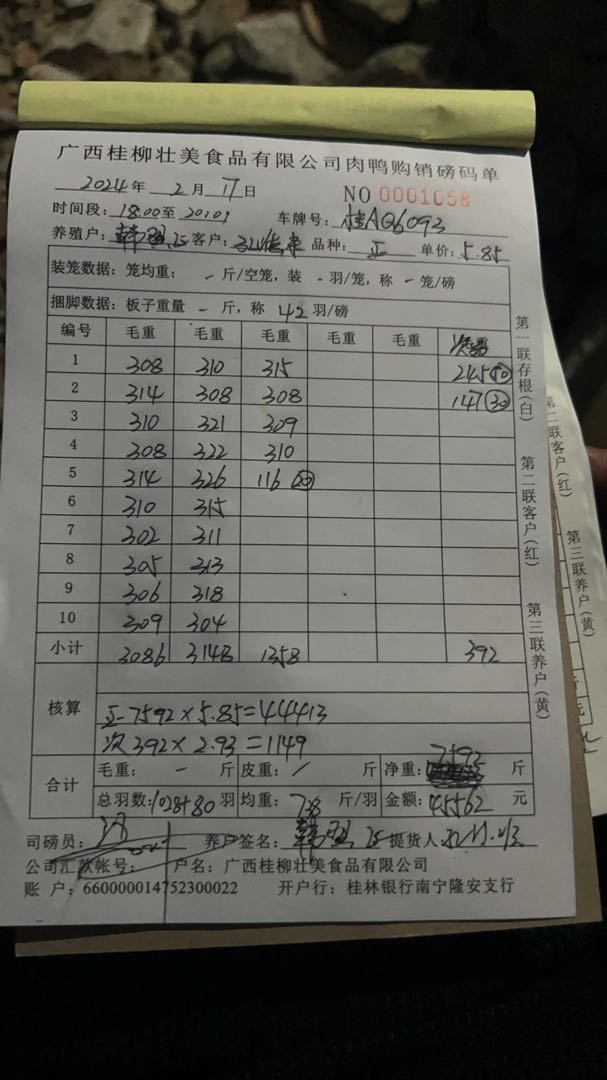 广西桂柳壮美食品有限公司肉鸭购销磅码单
2024年 2月 17日 NO 0001058
时间段: 18:00至 20:09 车牌号: 桂AQ6093
养殖户: 客户: 品种: 正 单价: 5.85
装笼数据: 笼均重: - 斤/空笼, 装 - 羽/笼, 称 - 笼/磅
捆脚数据: 板子重量 - 斤, 称 42 羽/磅
编号 毛重 毛重 毛重 毛重 毛重 次
1 308 310 315 245 50
2 314 308 308 147 30
3 310 321 309
4 308 322 310
5 314 326 116
6 310 315
7 302 311
8 305 313
9 306 318
10 309 304
小计 3086 3148 1358 392
核算
正 7592×5.85=44413
次 392×2.93=1149
合计 毛重: - 斤 皮重: / 斤 净重: 7592 斤
总羽数: 1028+80 羽 均重: 7.38 斤/羽 金额: 45562 元
司磅员: 养户签名: 提货人:
公司汇款帐号: 户名: 广西桂柳壮美食品有限公司
账 户: 660000014752300022 开户行: 桂林银行南宁隆安支行
第一联存根(白)
第二联客户(红)
第三联养户(黄)
第二联客户(红)
第三联养户(黄)
斤
元